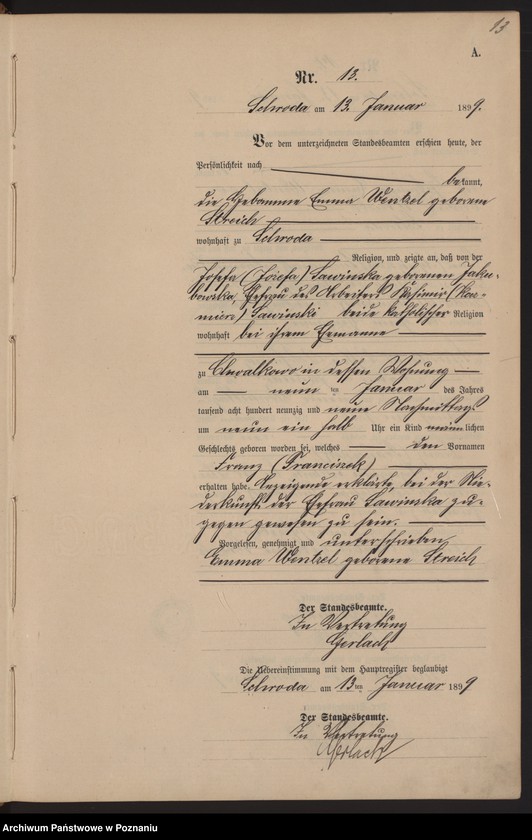 13
A.
Nr. 13.
Schroda am 13. Januar 1899.
Vor dem unterzeichneten Standesbeamten erschien heute, der
Persönlichkeit nach
bekannt,
die Hebamme Emma Wentzel geborene
Streich
wohnhaft zu Schroda
Religion, und zeigte an, daß von der
Josefa (Józefa) Sawinska geborenen Jaku-
bowska, Ehefrau des Arbeiters Kasimir (Kaź-
mierz) Sawinski beide katholischer Religion
wohnhaft bei ihrem Ehemanne
zu in dessen Wohnung
am neun ten Januar des Jahres
tausend acht hundert neunzig und neun Nachmittags
um neun ein halb Uhr ein Kind männlichen
Geschlechts geboren worden sei, welches den Vornamen
Franz (Franciszek)
erhalten habe. Anzeigende erklärte, bei der Nie-
derkunft der Ehefrau Sawinska zu-
gegen gewesen zu sein.
Vorgelesen, genehmigt und unterschrieben
Emma Wentzel geborene Streich
Der Standesbeamte.
In Vertretung
Gerlach
Die Uebereinstimmung mit dem Hauptregister beglaubigt
Schroda am 13 ten Januar 1899
Der Standesbeamte.
In Vertretung
Gerlach
Archiwum Państwowe w Poznaniu